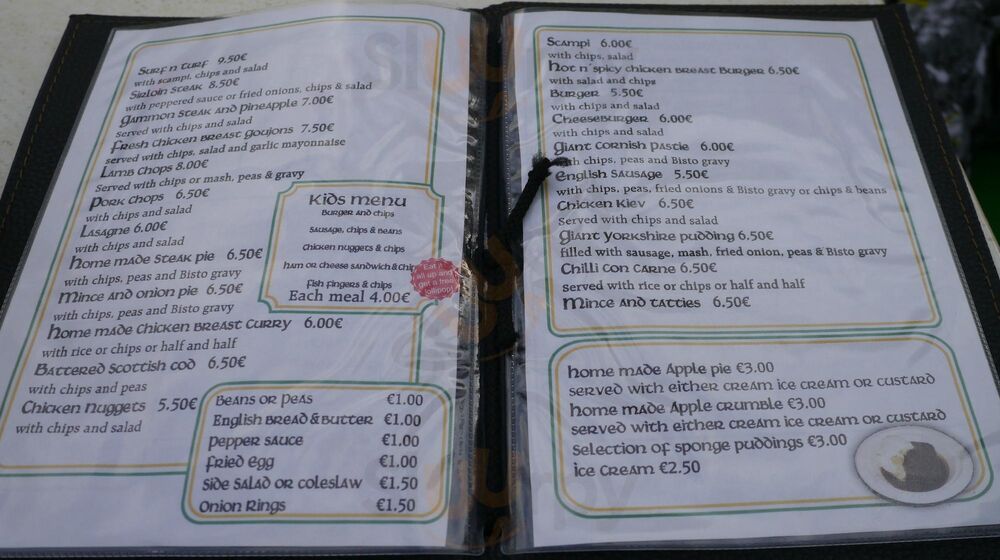 Surf n Turf 9.50€
with scampi, chips and salad
Sirloin Steak 8.50€
with peppered sauce or fried onions, chips & salad
Gammon Steak and Pineapple 7.00€
Served with chips and salad
Fresh Chicken Breast Goujons 7.50€
served with chips, salad and garlic mayonnaise
Lamb Chops 8.00€
Served with chips or mash, peas & gravy
Pork Chops 6.50€
with chips and salad
Lasagne 6.00€
with chips and salad
Home made Steak pie 6.50€
with chips, peas and Bisto gravy
Mince and onion pie 6.50€
with chips, peas and Bisto gravy
Home made Chicken Breast Curry 6.00€
with rice or chips or half and half
Battered Scottish cod 6.50€
with chips and peas
Chicken Nuggets 5.50€
with chips and salad
Kids menu
Burger and chips
Sausage, chips & beans
Chicken nuggets & chips
Ham or cheese sandwich & chi
Fish fingers & chips
Each meal 4.00€
Eat it
all up and
get a free
lollipop!
Beans or Peas €1.00
English Bread & Butter €1.00
Pepper Sauce €1.00
Fried Egg €1.00
Side Salad or coleslaw €1.50
Onion Rings €1.50
Scampi 6.00€
with chips, salad
Hot n´spicy chicken Breast Burger 6.50€
with salad and chips
Burger 5.50€
with chips and salad
Cheeseburger 6.00€
with chips and salad
Giant Cornish Pastie 6.00€
with chips, peas and Bisto gravy
English Sausage 5.50€
with chips, peas, fried onions & Bisto gravy or chips & beans
Chicken Kiev 6.50€
Served with chips and salad
Giant Yorkshire pudding 6.50€
filled with sausage, mash, fried onion, peas & Bisto gravy
Chilli con carne 6.50€
served with rice or chips or half and half
Mince and tatties 6.50€
home made Apple pie €3.00
served with either cream ice cream or custard
home made Apple crumble €3.00
served with either cream ice cream or custard
Selection of sponge puddings €3.00
ice cream €2.50